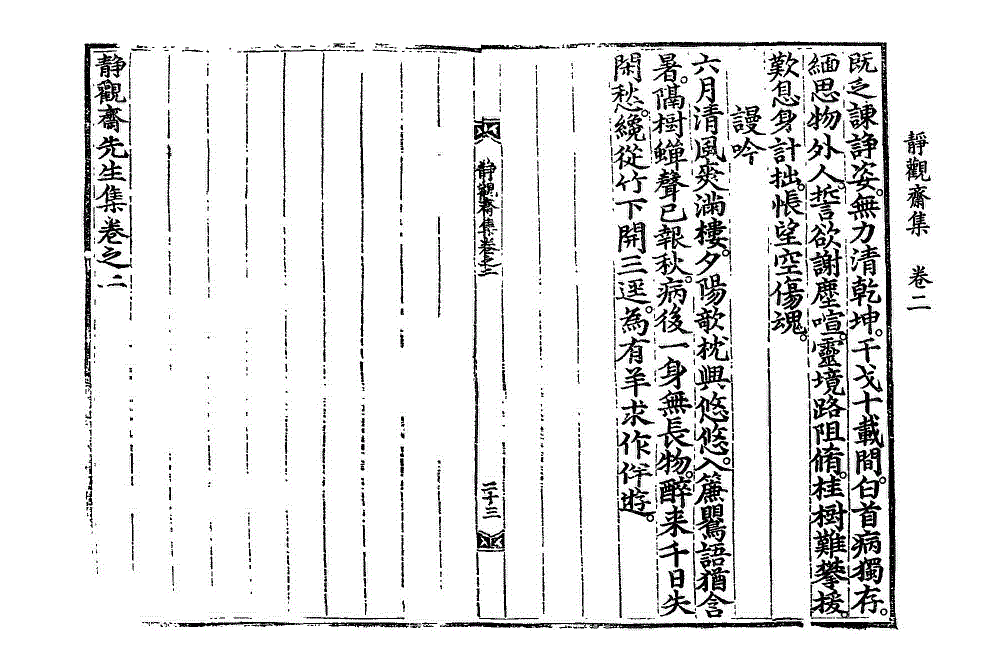 靜觀齋集　卷二
既乏諫諍姿。無力淸乾坤。干戈十載間。白首病獨存。
緬思物外人。誓欲謝塵喧。靈境路阻脩。桂樹難攀援
歎息身計拙。悵望空傷魂。
謾吟
六月淸風爽滿樓。夕陽欹枕興悠悠。入簾鶯語猶含
暑。隔樹蟬聲已報秋。病後一身無長物。醉來千日失
閑愁。纔從竹下開三逕。爲有羊求作伴遊。
靜觀齋集卷之二
二十三
靜觀齋先生集卷之二